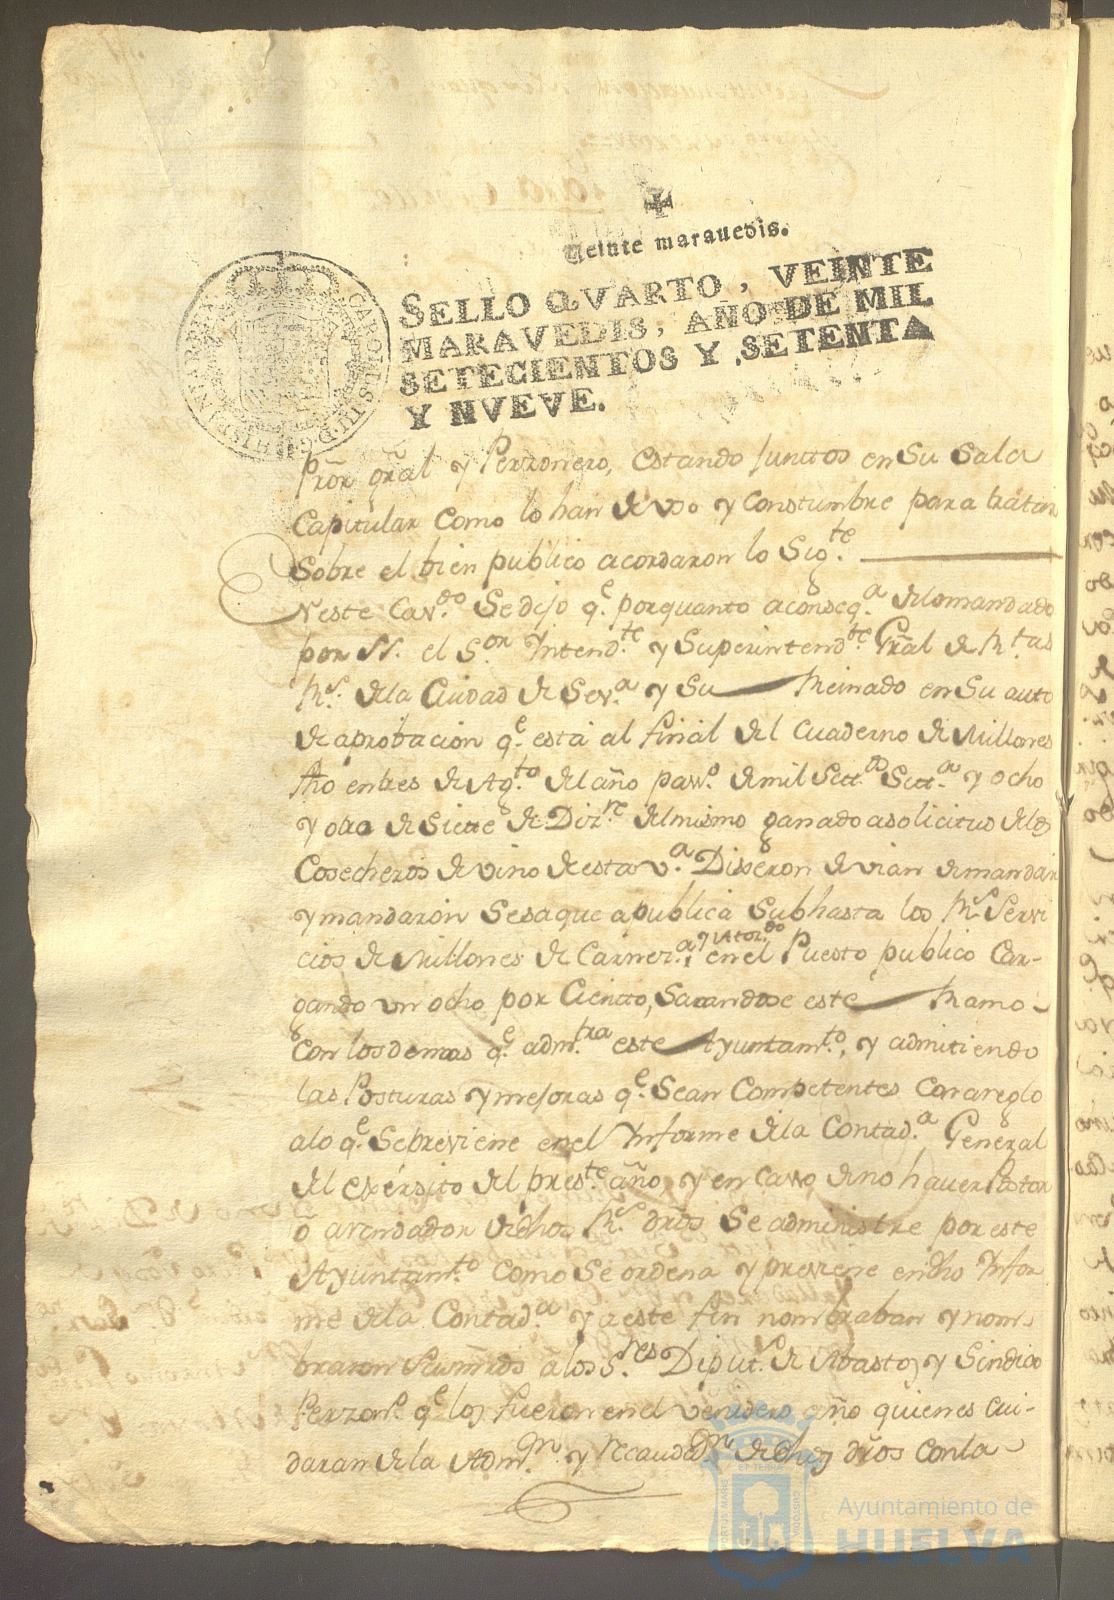 Veinte maravedis.
SELLO QVARTO, VEINTE
MARAVEDIS, AÑO DE MIL
SETECIENTOS Y SETENTA
Y NVEVE.
CAROLUS III D G HISPANIAR REX
Pror gral y Perzonero, estando junttos en Su Sala
Capitular como lo han de uso y Constumbre para tratar
Sobre el bien publico acordaron lo Sigte.
Neste Cavdo. Se dijo qe. porquanto a conseqa. de lo mandado
por SS. el Sor Yntendte. y Superintendte. Gral de Rtas
Rs. de la Ciudad de Seva. y Su Reinado en Su auto
de aprobacion qe. está al final del Cuaderno de Millones
fho en tres de Agto. del año pasdo. de mil Settos Setta. y ocho
y otro de Siette de Dizre. del mismo ganado a solicitud de los
Cosecheros de vino de esta va. Dixeron devian de mandar
y mandaron Se saque a publica Subhasta los Rs. Servi
cios de Millones de Carnera. y Vtordo en el Puesto publico Car-
gando un ocho por Cientto, Sacandose este Ramo
con los demas qe. admtra este Ayuntamto., y admitiendo
las Posturas y mejoras qe. Sean Competentes con areglo
a lo qe. Se previene en el Ynforme de la Contada. General
del exérsito del preste. año, y en caso de no haver Postor
ô arendador de dhos Rs. dros Se administre por este
Ayuntamto. como Se ordena y previene en dho Ynfor
me de la Contada. y a este fin nombraban y nom-
braron Sus mrds â los Sres Diputs. de Abastos y Sindico
Perzonro. qe los fueren en el venidero año quienes cui-
daran de la Admon. y recaudaon. de dhos dros con la
Ayuntamiento de
HUELVA